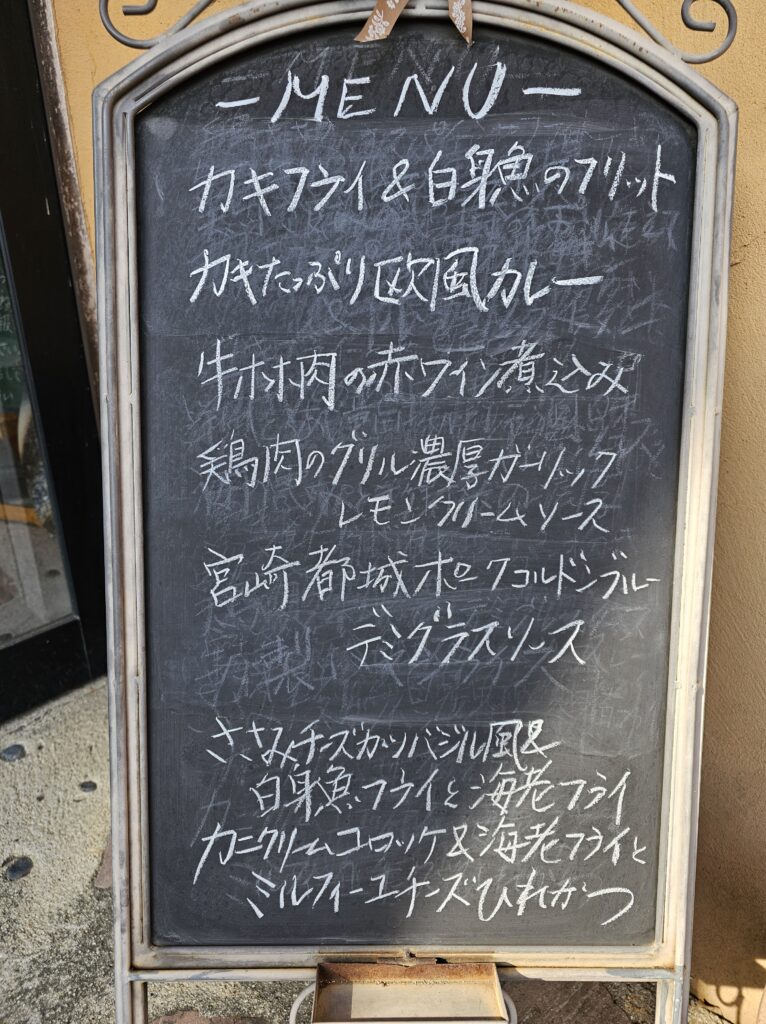 -MENU-
カキフライ&白身魚のフリット
カキたっぷり欧風カレー
牛ホホ肉の赤ワイン煮込み
鶏肉のグリル濃厚ガーリック
レモンクリームソース
宮崎都城ポークコルドンブルー
デミグラスソース
ささみチーズカツバジル風&
白身魚フライと海老フライ
カニクリームコロッケ&海老フライと
ミルフィーユチーズひれかつ